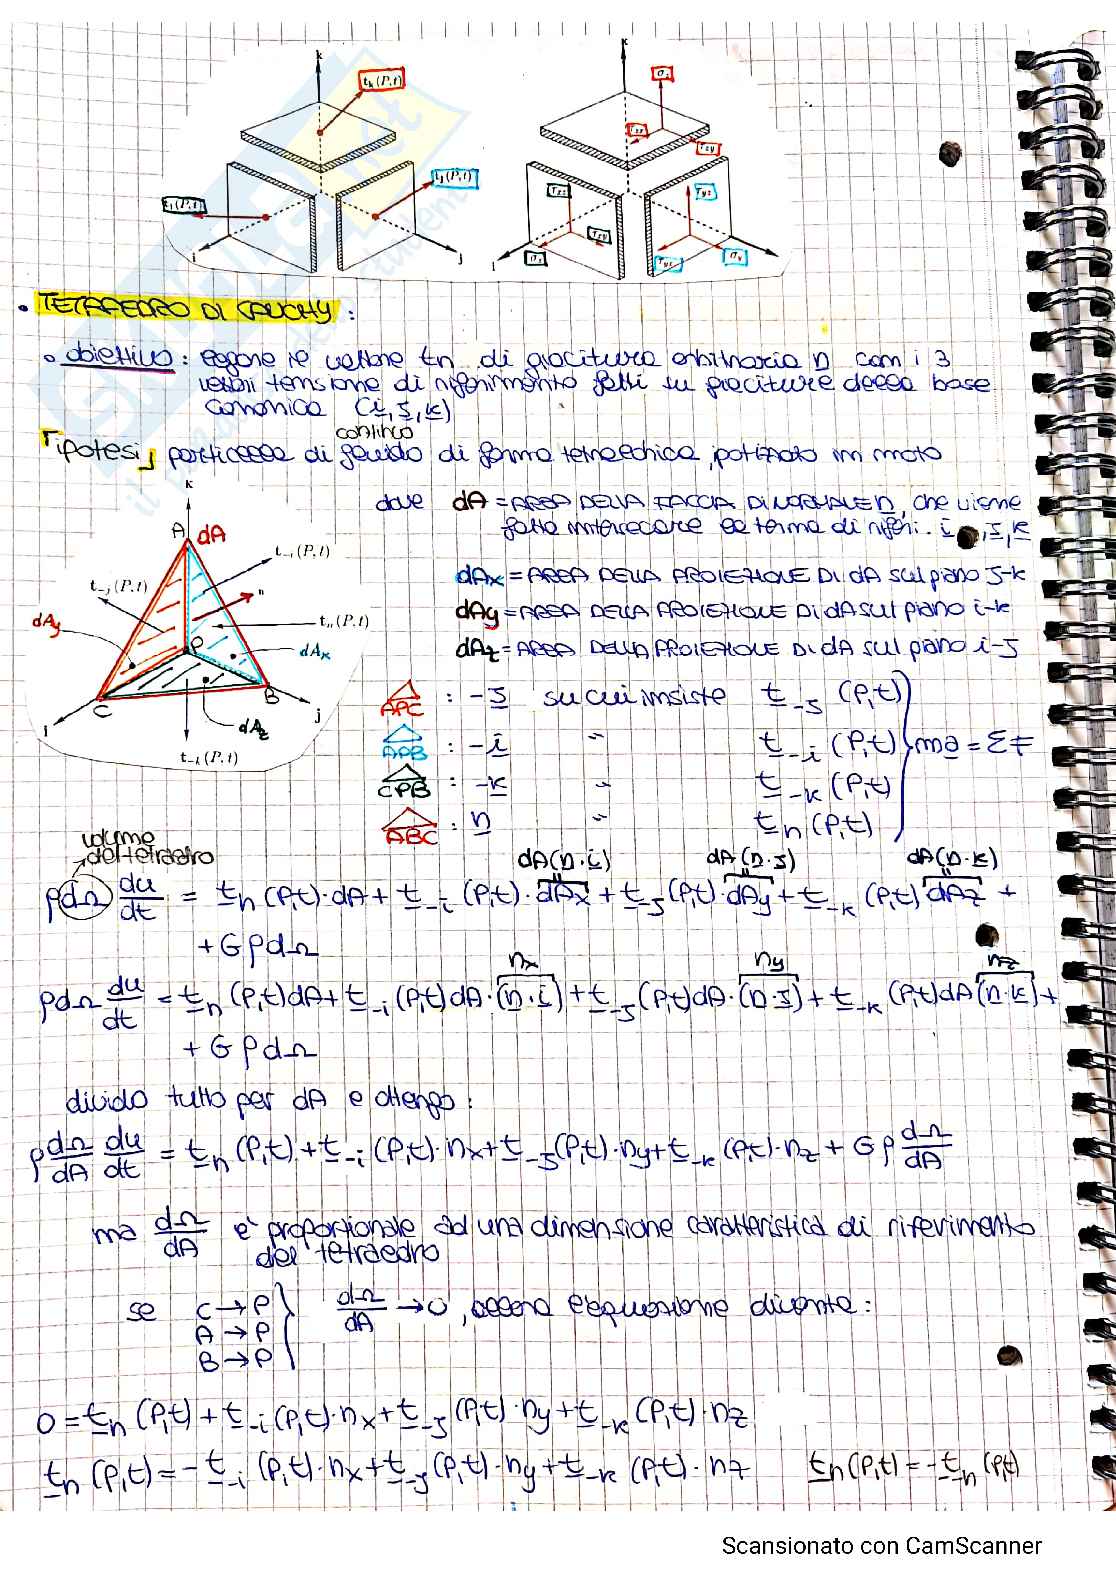 k
t_k(P,t)
t_j(P,t)
t_i(P,t)
i
j
k
σ_z
τ_zx
τ_zy
τ_xz
τ_yz
τ_xy
σ_x
τ_yx
σ_y
i
• TETRAEDRO DI CAUCHY :
• obiettivo : legare il vettore t_n di giacitura arbitraria n con i 3
vettori tensione di riferimento fatti su giaciture della base
canonica (i, j, k)
continuo
"ipotesi" particella di fluido di forma tetraedrica, ipotizzato in moto
k
A dA
t_-i (P,t)
t_-j (P,t)
n
t_n (P,t)
dAy
P
dAx
C
B
i
j
dAz
t_-k (P,t)
dove dA = AREA DELLA FACCIA DI NORMALE n, che viene
fatta intersecare la terna di riferi. i, j, k
dAx = AREA DELLA PROIEZIONE DI dA sul piano j-k
dAy = AREA DELLA PROIEZIONE DI dA sul piano i-k
dAz = AREA DELLA PROIEZIONE DI dA sul piano i-j
APC : -j su cui insiste t_-j (P,t)
APB : -i " t_-i (P,t) } ma = ΣF
CPB : -k " t_-k (P,t)
ABC : n " t_n (P,t)
volume
del tetraedro
dA(n·i) dA(n·j) dA(n·k)
ρdΩ du/dt = t_n (P,t)·dA + t_-i (P,t)·dAx + t_-j (P,t)·dAy + t_-k (P,t) dAz +
+ GρdΩ
nx ny nz
ρdΩ du/dt = t_n (P,t)dA + t_-i (P,t)dA·(n·i) + t_-j (P,t)dA·(n·j) + t_-k (P,t)dA(n·k) +
+ GρdΩ
divido tutto per dA e ottengo :
ρ dΩ/dA du/dt = t_n (P,t) + t_-i (P,t)·nx + t_-j (P,t)·ny + t_-k (P,t)·nz + Gρ dΩ/dA
ma dΩ/dA è proporzionale ad una dimensione caratteristica di riferimento
del tetraedro
se C→P
A→P
B→P
} dΩ/dA → 0, allora l'equazione diventa :
0 = t_n (P,t) + t_-i (P,t)·nx + t_-j (P,t)·ny + t_-k (P,t)·nz
t_n (P,t) = -t_-i (P,t)·nx + t_-j (P,t)·ny + t_-k (P,t)·nz t_n (P,t) = -t_-n (P,t)
Scansionato con CamScanner